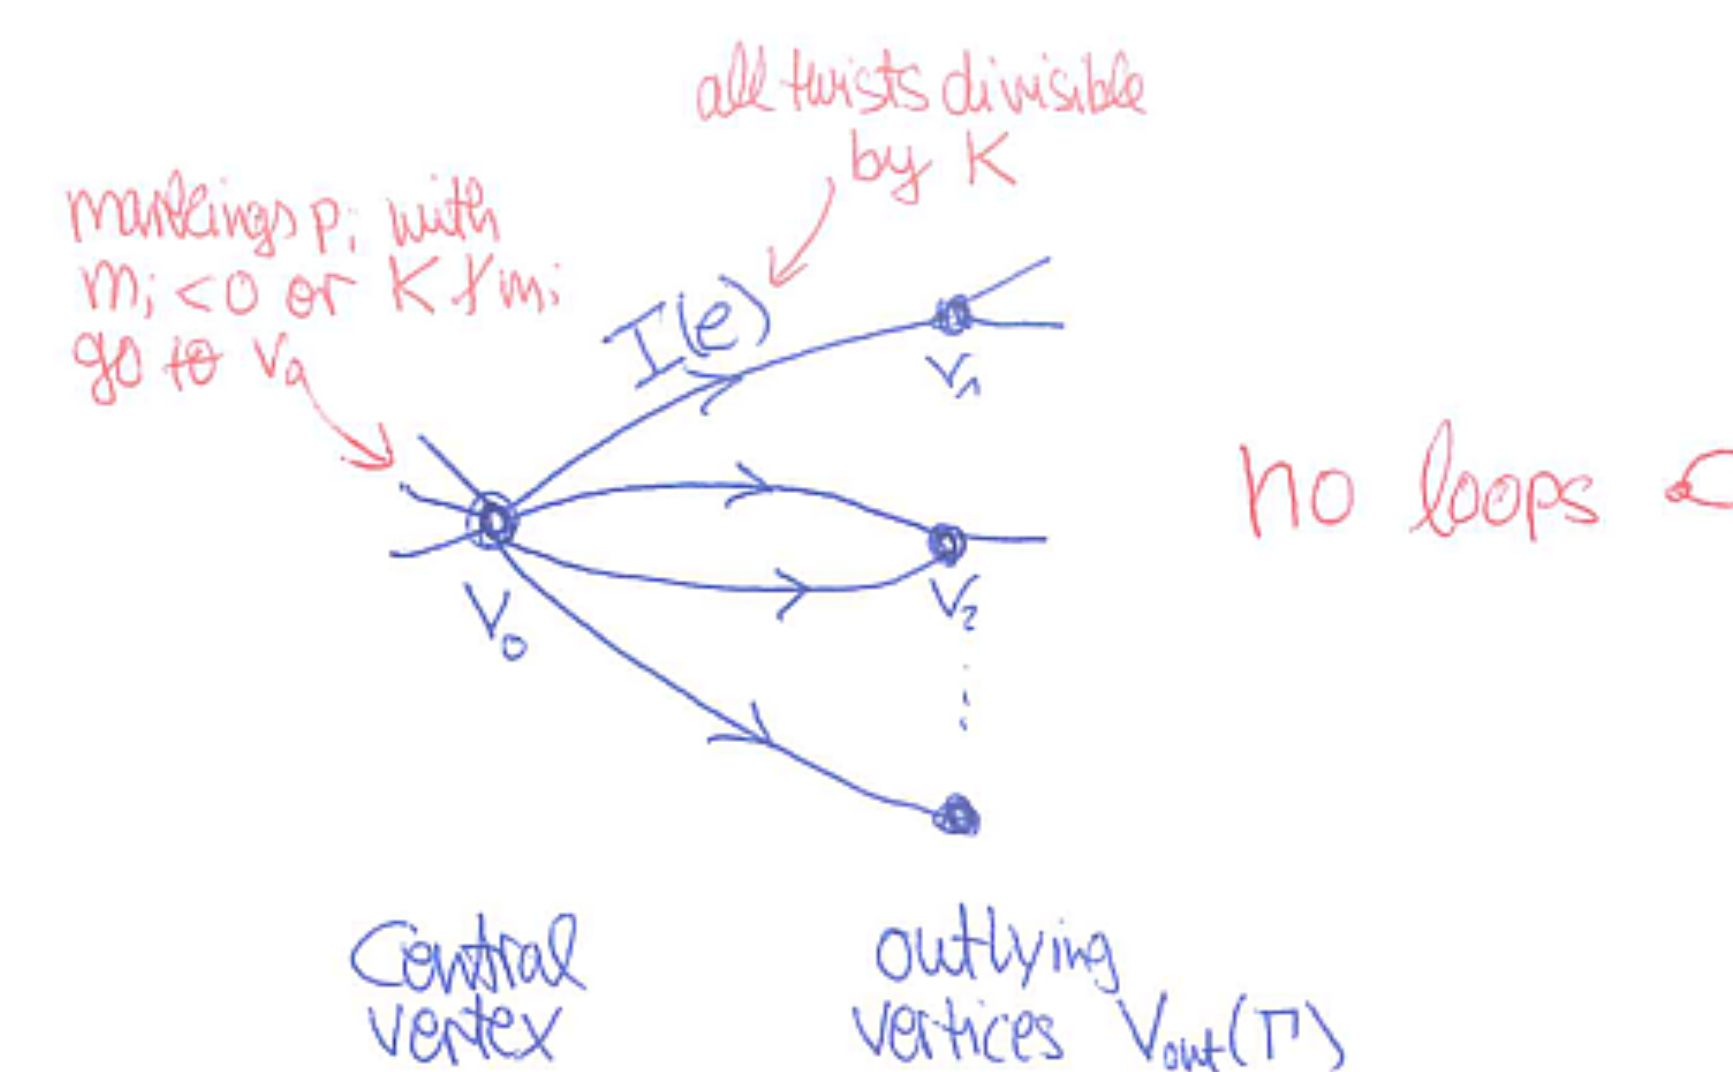 all twists divisible
by K
markings p_i with
m_i < 0 or K ∤ m_i
go to v_0
I(e)
v_1
no loops
v_2
v_0
⋮
Central
vertex
outlying
vertices V_out(Γ)